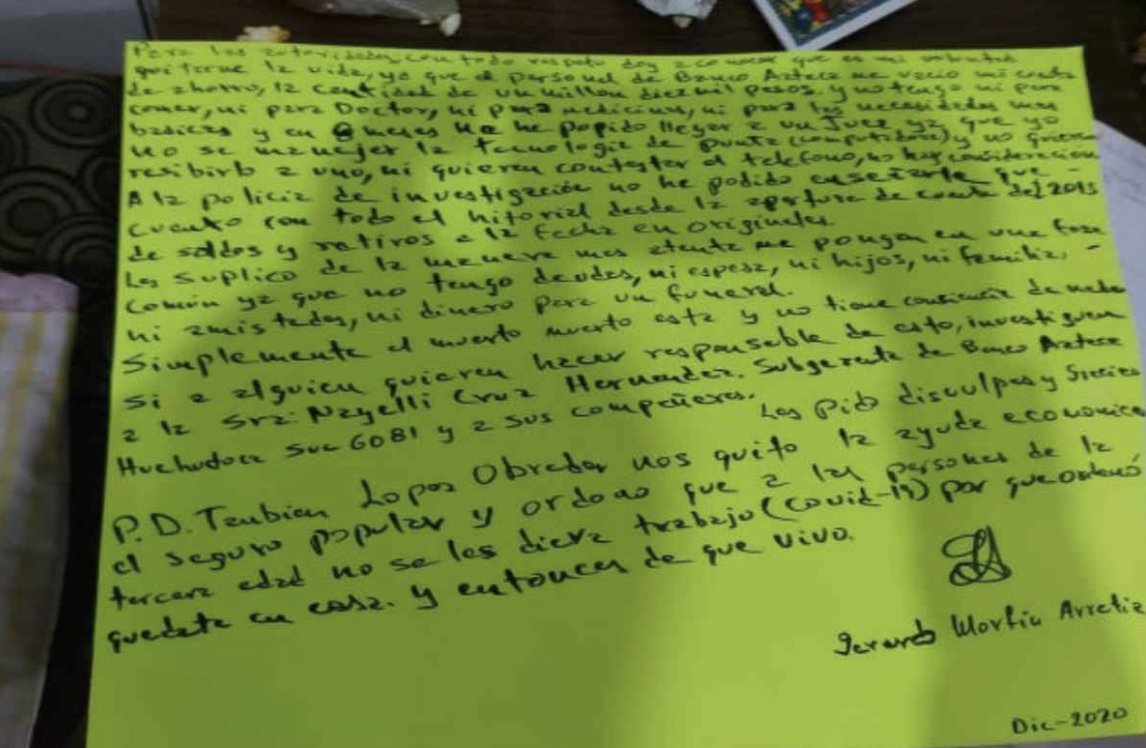 Para las autoridades, con todo respeto doy a conocer que es mi voluntad
quitarme la vida, ya que el personal de Banco Azteca me vacio mi cuenta
de ahorro, la cantidad de un millon diezmil pesos y no tengo ni para
comer, ni para Doctor, ni para medicinas, ni para las necesidades mas
basicas y en 8 meses no he podido llegar a un Juez ya que yo
no se manejar la tecnologia de punta (computadora) y no quieren
recibirlo a uno, ni quieren contestar el telefono, no hay consideracion
A la policia de investigación no he podido enseñarle que -
cuento con todo el hitorial desde la apertura de cuenta del 2015
de saldos y retiros a la fecha en originales.
Les suplico de la manera mas atenta me pongan en una fosa
común ya que no tengo deudas, ni esposa, ni hijos, ni familia, -
ni amistades, ni dinero para un funeral.
Simplemente el muerto muerto esta y no tiene conciencia de nada
si a alguien quieren hacer responsable de esto, investiguen
a la Sra: Nayelli Cruz Hernandez. Subgerente de Banco Azteca
Huehuetoca Suc 6081 y a sus compañeros.
Les pido disculpas y Gracias
P.D. Tambien Lopez Obrador nos quito la ayuda economica
el seguro popular y ordeno que a las personas de la
tercera edad no se les diera trabajo (Covid-19) por que ordenó,
quedate en casa. y entonces de que vivo.
Gerardo Martin Arretia
Dic-2020